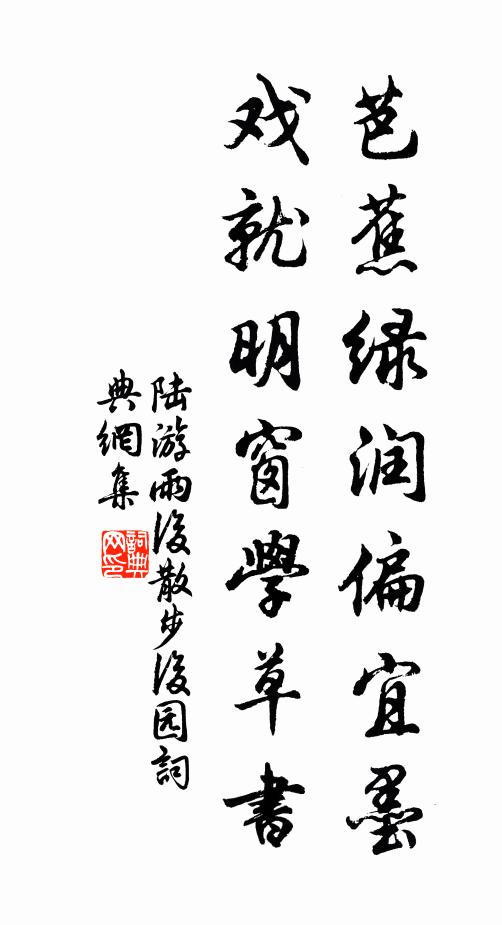 芭蕉绿润偏宜墨
戏就明窗学草書
陆游雨後散步後园詞
典網集
詞典
网印